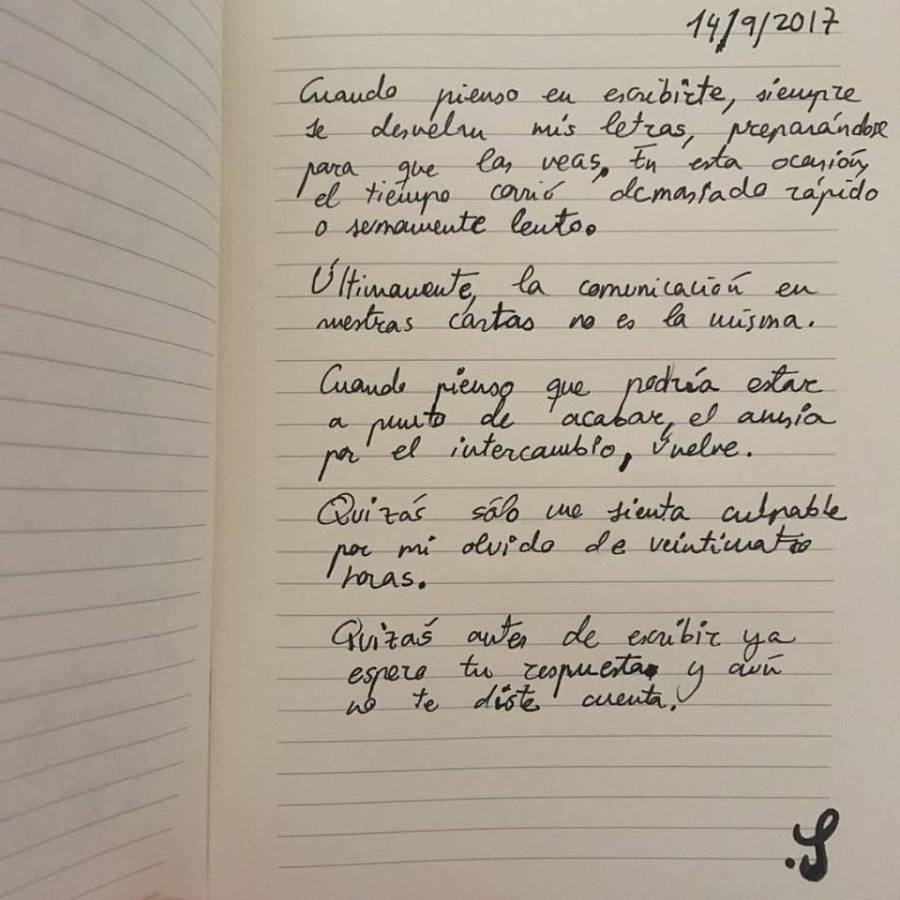 14/9/2017
Cuando pienso en escribirte, siempre
se desvelan mis letras, preparándose
para que las veas. En esta ocasión,
el tiempo corrió demasiado rápido
o sumamente lento.
Últimamente, la comunicación en
nuestras cartas no es la misma.
Cuando pienso que podría estar
a punto de acabar, el ansia
por el intercambio, vuelve.
Quizás sólo me sienta culpable
por mi olvido de veinticuatro
horas.
Quizás antes de escribir ya
espero tu respuesta y aún
no te diste cuenta.
.S